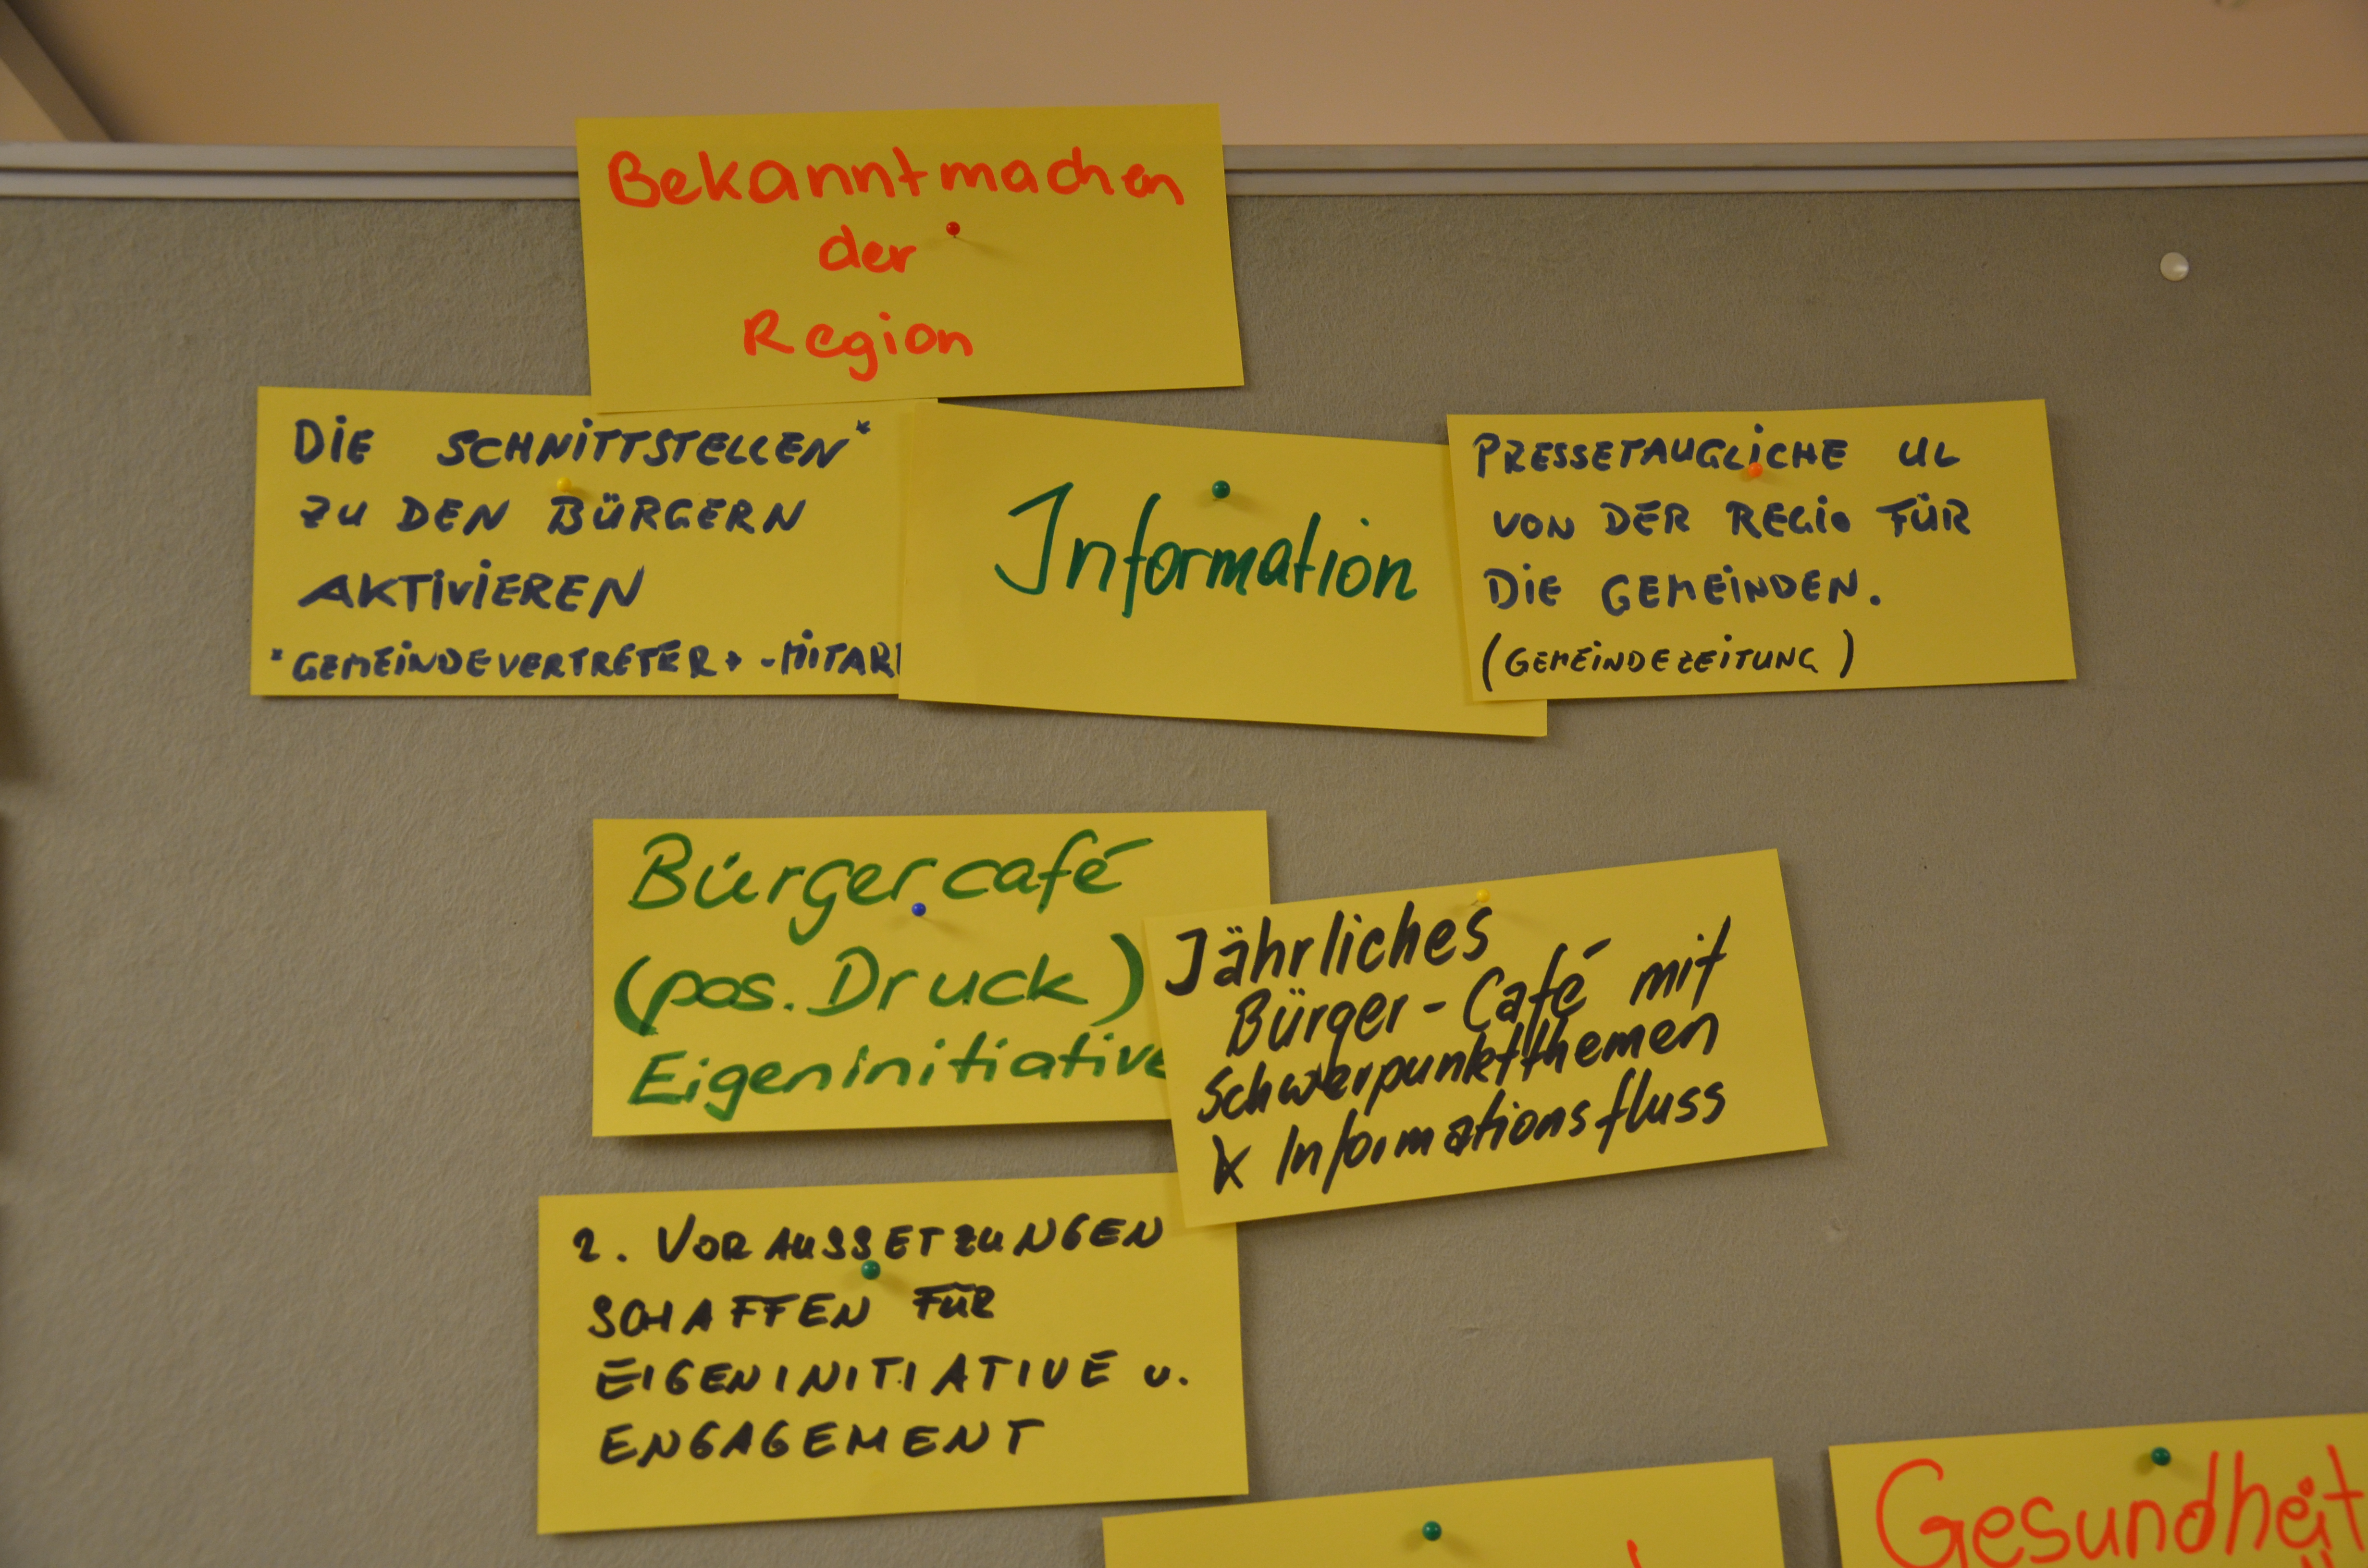 Bekanntmachen
der
Region
DIE SCHNITTSTELLEN*
ZU DEN BÜRGERN
AKTIVIEREN
*GEMEINDEVERTRETER + -MITAR
Information
PRESSETAUGLICHE UL
VON DER REGIO FÜR
DIE GEMEINDEN.
(GEMEINDEZEITUNG)
Bürgercafé
(pos. Druck)
Eigeninitiative
Jährliches
Bürger-Café mit
Schwerpunktthemen
Informationsfluss
2. VORAUSSETZUNGEN
SCHAFFEN FÜR
EIGENINITIATIVE u.
ENGAGEMENT
Gesundheit